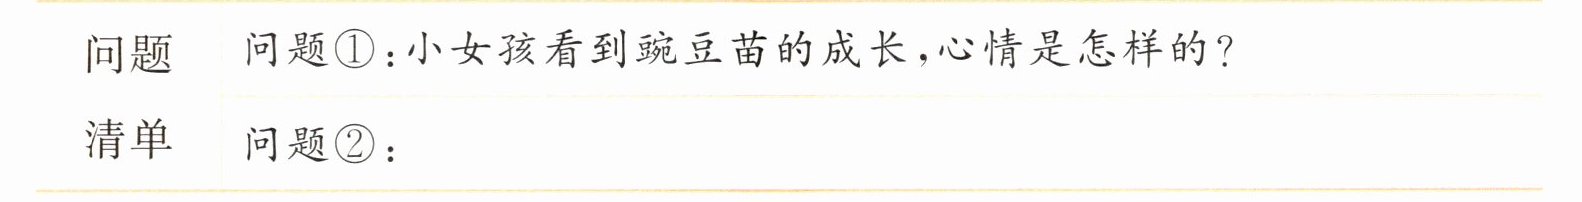 问题
清单
问题①：小女孩看到豌豆苗的成长，心情是怎样的？
问题②：